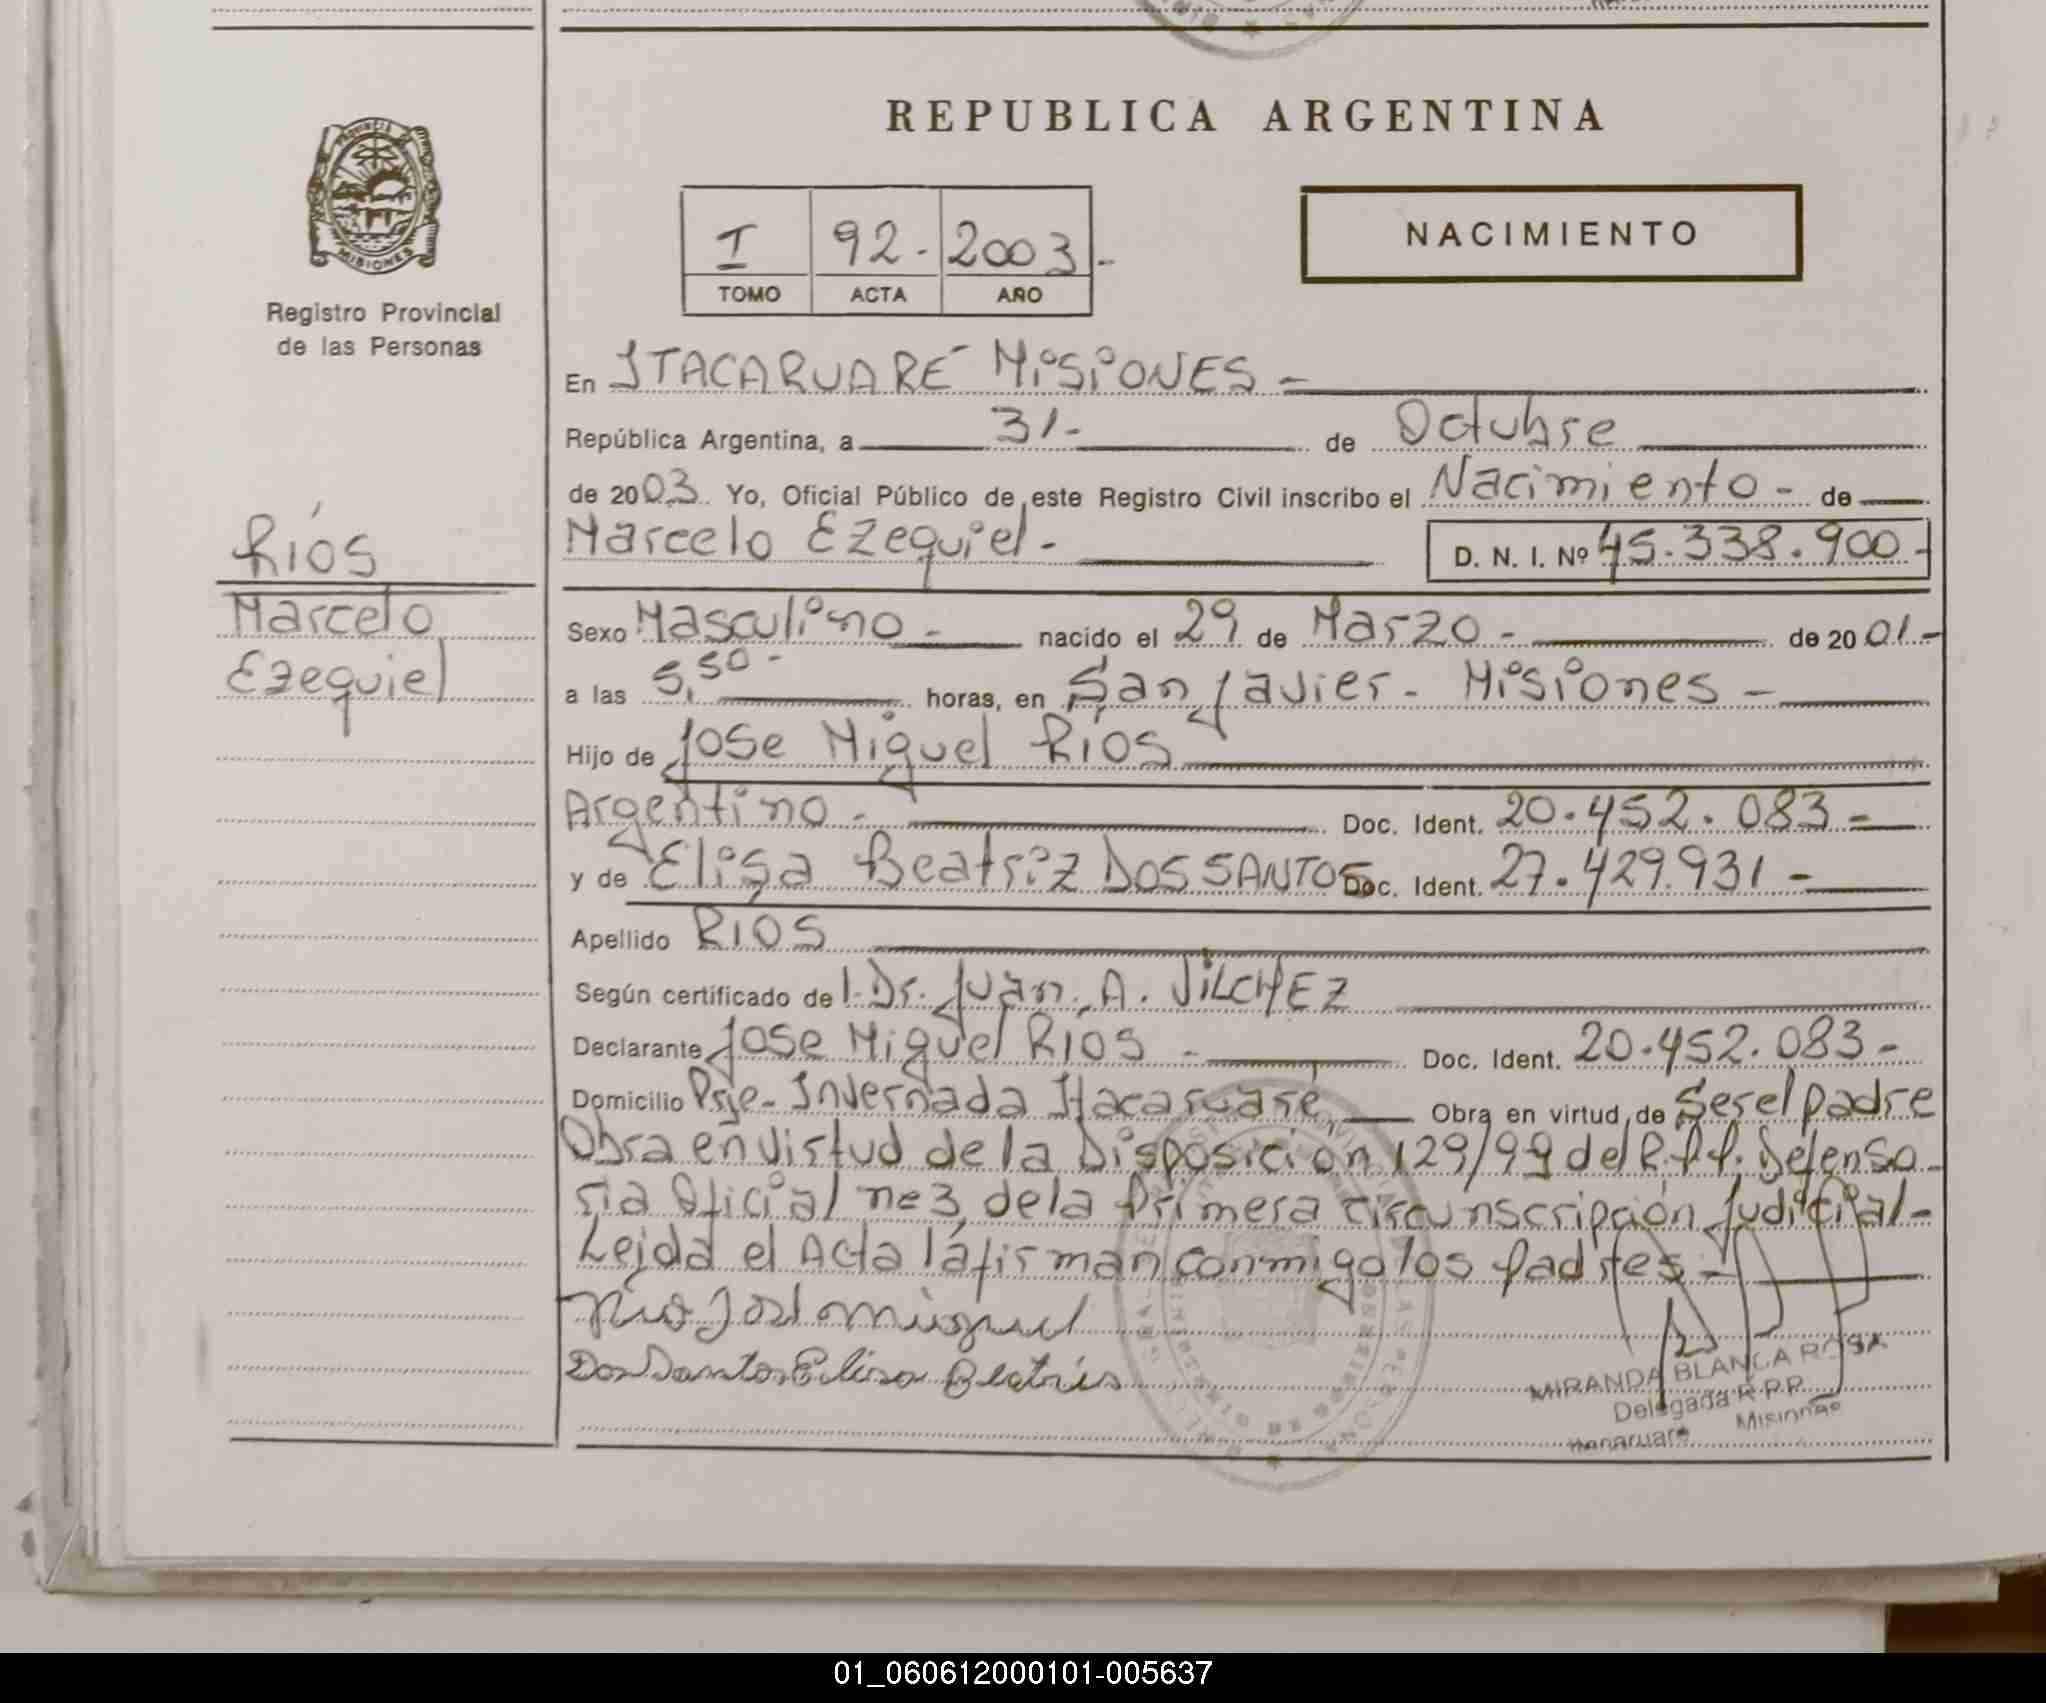 REPUBLICA ARGENTINA
PROVINCIA DE
MISIONES
Registro Provincial
de las Personas
I 92.- 2003.-
TOMO ACTA AÑO
NACIMIENTO
En ITACARUARÉ MiSiONES -
República Argentina, a 31- de Octubre
de 2003. Yo, Oficial Público de este Registro Civil inscribo el Nacimiento - de
Ríos
Marcelo Ezequiel - D. N. I. Nº 45.338.900-
Marcelo
Sexo Masculino - nacido el 29 de Marzo - de 2001.-
Ezequiel
a las 5,50- horas, en San Javier - Misiones -
Hijo de Jose Miguel Ríos
Argentino - Doc. Ident. 20.452.083-
y de Elisa Beatriz DOS SANTOS Doc. Ident. 27.429.931-
Apellido RIOS
Según certificado de l. Dr. Juan. A. ViLCHEZ
Declarante Jose Miguel RIOS - Doc. Ident. 20.452.083-
Domicilio Pje- Invernada Itacaruaré, Obra en virtud de Ser el padre
Obra en virtud de la Disposición 129/99 del R.P.P. Defenso-
ria Oficial nº 3, de la Primera circunscripción Judicial-
Leida el Acta la firman conmigo los Padres -
Rios José Miguel
Dos Santos Elisa Beatris
MIRANDA BLANCA ROSA
Delegada R.P.P.
Itacaruaré Misiones
01_060612000101-005637